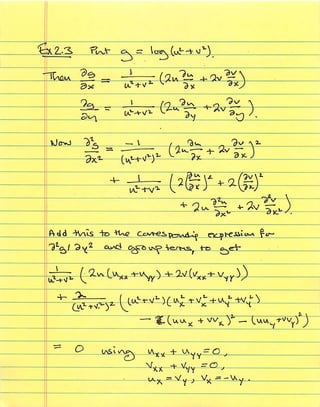 Ex 2.3 Put g = log(u²+v²).
Then ∂g/∂x = 1/(u²+v²) (2u ∂u/∂x + 2v ∂v/∂x)
∂g/∂y = 1/(u²+v²) (2u ∂u/∂y + 2v ∂v/∂y).
Now ∂²g/∂x² = -1/(u²+v²)² (2u ∂u/∂x + 2v ∂v/∂x)²
+ 1/(u²+v²) (2(∂u/∂x)² + 2(∂v/∂x)²
+ 2u ∂²u/∂x² + 2v ∂²v/∂x²).
Add this to the corresponding expression for
∂²g/∂y² and group terms, to get
1/(u²+v²) (2u(uxx+uyy) + 2v(vxx+vyy))
+ 2/(u²+v²)² ((u²+v²)(ux²+vx²+uy²+vy²)
- 2(uux+vvx)² - (uuy+vvy)²)
= 0 using uxx+uyy=0,
vxx+vyy=0,
ux=vy, vx=-uy.